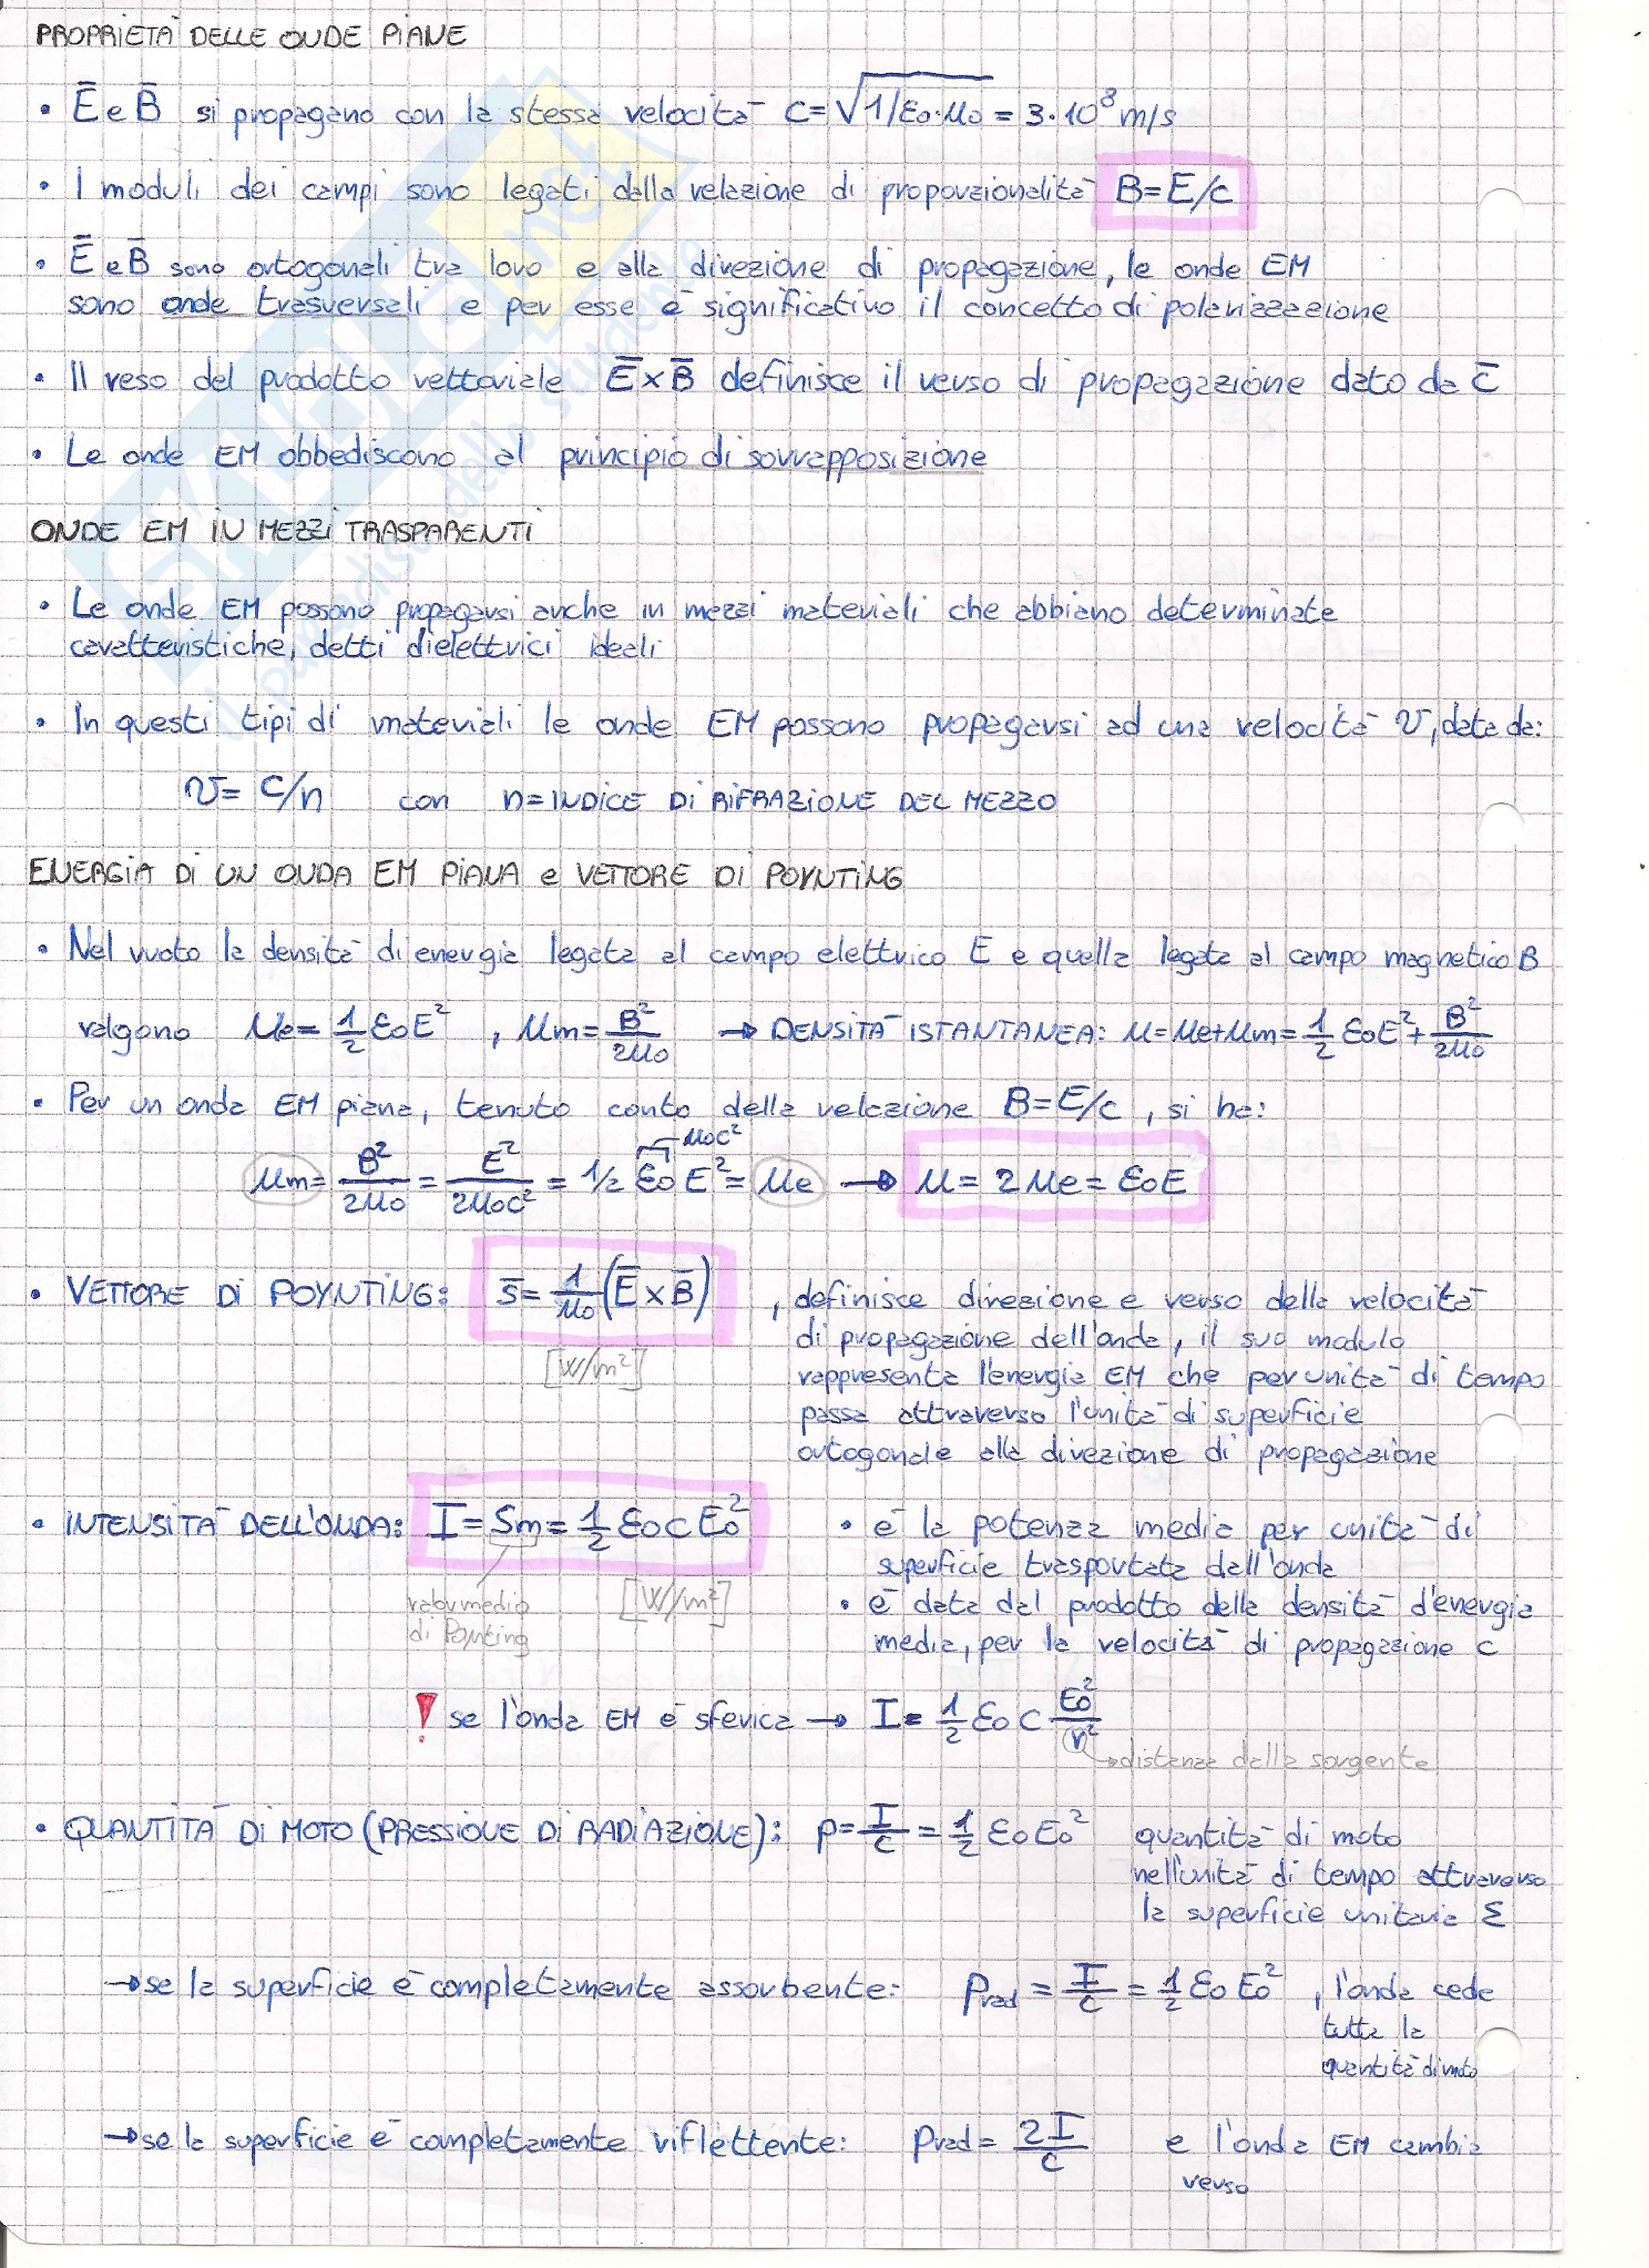 PROPRIETÀ DELLE ONDE PIANE
• E̅ e B̅ si propagano con la stessa velocità c=√1/ε₀·μ₀ = 3·10⁸ m/s
• I moduli dei campi sono legati dalla relazione di proporzionalità B=E/c
• E̅ e B̅ sono ortogonali tra loro e alla direzione di propagazione, le onde EM
sono onde trasversali e per esse è significativo il concetto di polarizzazione
• Il veso del prodotto vettoriale E̅×B̅ definisce il verso di propagazione dato da c̅
• Le onde EM obbediscono al principio di sovrapposizione
ONDE EM IN MEZZI TRASPARENTI
• Le onde EM possono propagarsi anche in mezzi materiali che abbiano determinate
caratteristiche, detti dielettrici ideali
• In questi tipi di materiali le onde EM possono propagarsi ad una velocità v, data da:
v= c/n con n=INDICE DI RIFRAZIONE DEL MEZZO
ENERGIA DI UN ONDA EM PIANA e VETTORE DI POYNTING
• Nel vuoto la densità di energia legata al campo elettrico E e quella legata al campo magnetico B
valgono μe= 1/2 ε₀E² , μm= B²/2μ₀ → DENSITÀ ISTANTANEA: μ=μe+μm= 1/2 ε₀E²+ B²/2μ₀
• Per un onda EM piana, tenuto conto della relazione B=E/c, si ha:
μ₀c²
μm= B²/2μ₀ = E²/2μ₀c² = 1/2 ε₀E² = μe → μ= 2μe= ε₀E
• VETTORE DI POYNTING: s̅= 1/μ₀ (E̅×B̅) , definisce direzione e verso della velocità
di propagazione dell'onda, il suo modulo
[W/m²]
rappresenta l'energia EM che per unità di tempo
passa attraverso l'unità di superficie
ortogonale alla direzione di propagazione
• INTENSITÀ DELL'ONDA: I=Sm= 1/2 ε₀cE₀² • è la potenza media per unità di
superficie trasportata dall'onda
valor medio
di Poynting
[W/m²]
• è data dal prodotto della densità d'energia
media, per la velocità di propagazione c
! se l'onda EM è sferica → I= 1/2 ε₀ c E₀²/r²
→distanza dalla sorgente
• QUANTITÀ DI MOTO (PRESSIONE DI RADIAZIONE): p= I/c = 1/2 ε₀E₀² quantità di moto
nell'unità di tempo attraverso
la superficie unitaria Σ
→se la superficie è completamente assorbente: Prad = I/c = 1/2 ε₀E₀² , l'onda cede
tutta la
quantità di moto
→se la superficie è completamente riflettente: Prad= 2I/c e l'onda EM cambia
verso
SKUOLA.net
il paradiso dello studente